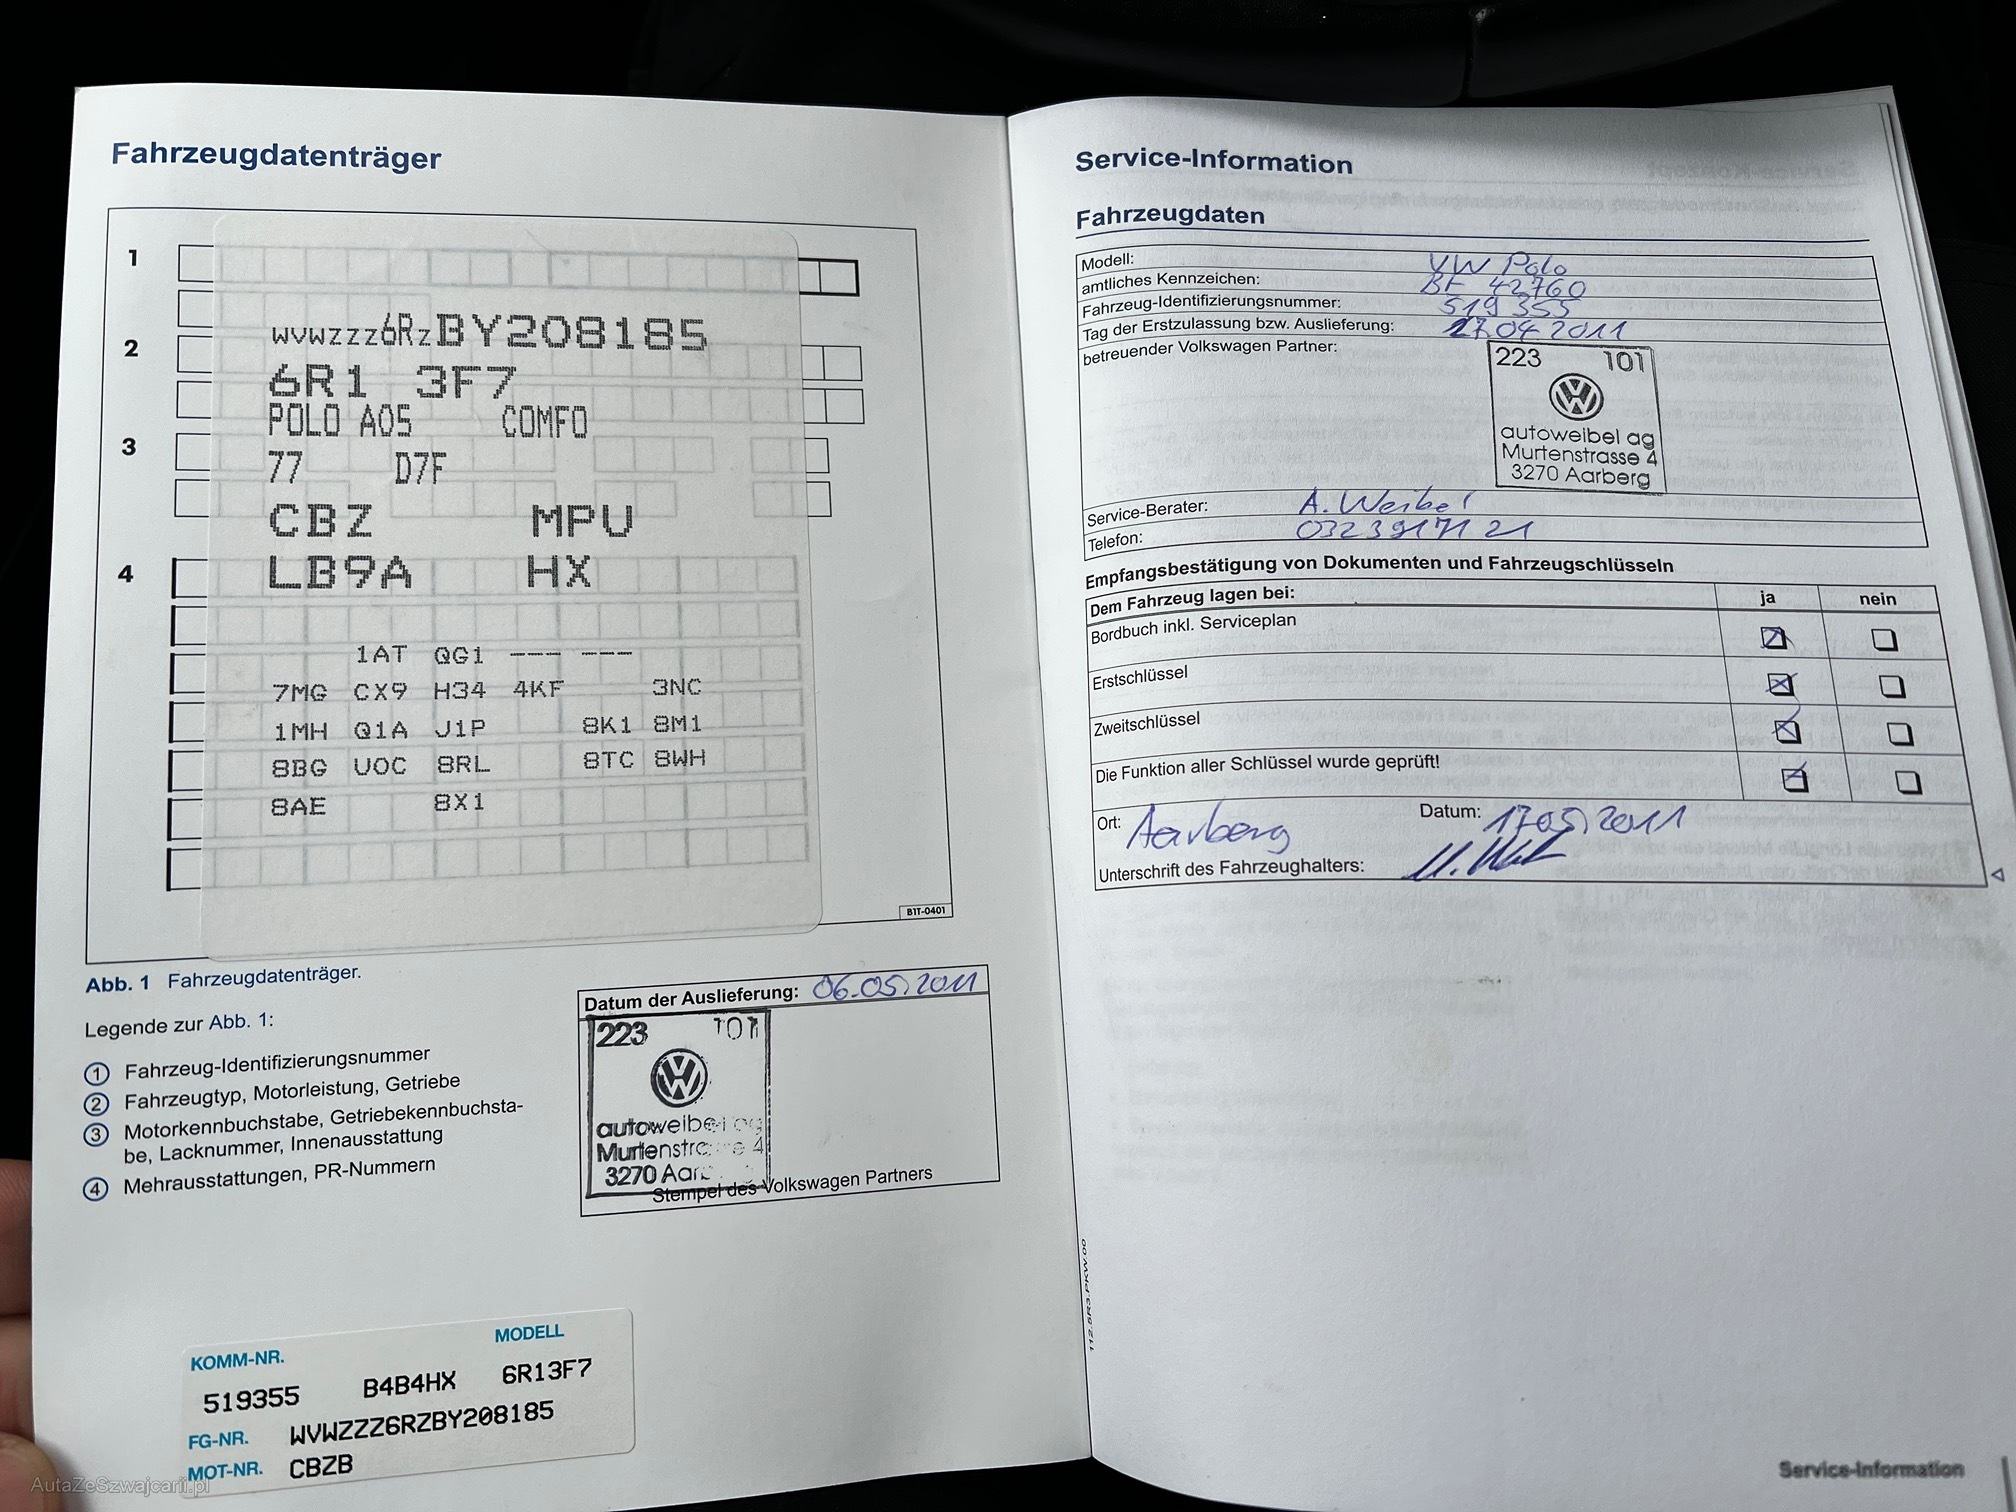 Fahrzeugdatenträger
1
2
3
4
WVWZZZ6RZBY208185
6R1 3F7
POLO A05 COMFO
77 D7F
CBZ MPU
LB9A HX
1AT QG1 --- ---
7MG CX9 H34 4KF 3NC
1MH Q1A J1P 8K1 8M1
8BG UOC 8RL 8TC 8WH
8AE 8X1
B1T-0401
Abb. 1 Fahrzeugdatenträger.
Legende zur Abb. 1:
1 Fahrzeug-Identifizierungsnummer
2 Fahrzeugtyp, Motorleistung, Getriebe
3 Motorkennbuchstabe, Getriebekennbuchsta-
be, Lacknummer, Innenausstattung
4 Mehrausstattungen, PR-Nummern
Datum der Auslieferung: 06.05.2011
223 101
autoweibel ag
Murtenstrasse 4
3270 Aarberg
Stempel des Volkswagen Partners
KOMM-NR. MODELL
519355 B4B4HX 6R13F7
FG-NR. WVWZZZ6RZBY208185
MOT-NR. CBZB
AutaZeSzwajcarii.pl
Service-Information
Fahrzeugdaten
Modell: VW Polo
amtliches Kennzeichen: BE 42760
Fahrzeug-Identifizierungsnummer: 519 355
Tag der Erstzulassung bzw. Auslieferung: 27.04.2011
betreuender Volkswagen Partner:
223 101
autoweibel ag
Murtenstrasse 4
3270 Aarberg
Service-Berater: A. Weibel
Telefon: 032 391 71 21
Empfangsbestätigung von Dokumenten und Fahrzeugschlüsseln
Dem Fahrzeug lagen bei: ja nein
Bordbuch inkl. Serviceplan
Erstschlüssel
Zweitschlüssel
Die Funktion aller Schlüssel wurde geprüft!
Ort: Aarberg Datum: 17.05.2011
Unterschrift des Fahrzeughalters:
112.5R3.PKW.00
Service-Information